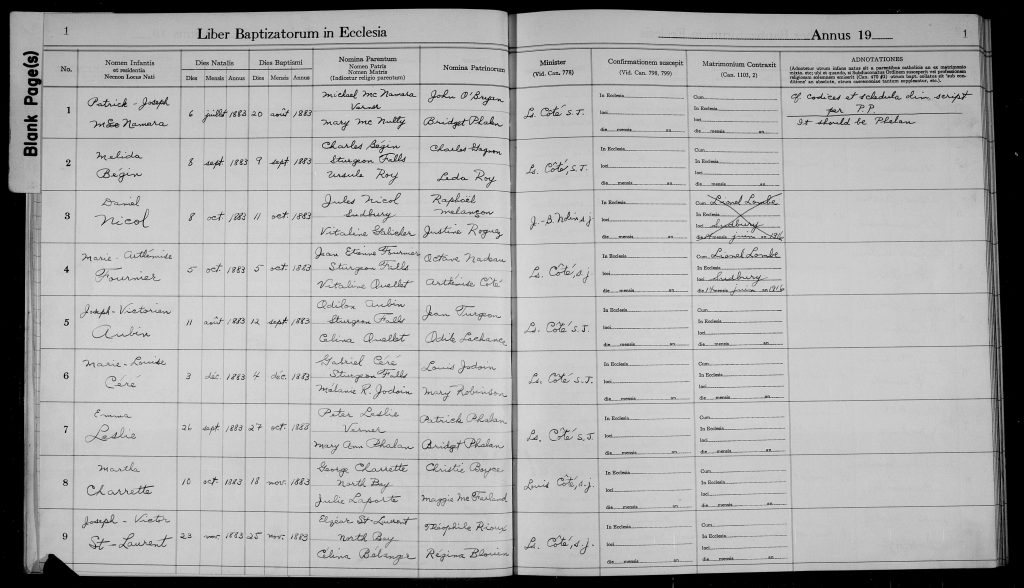 Blank Page(s)
1
Liber Baptizatorum in Ecclesia
Annus 19
1
No.
Nomen Infantis
et residentia
Necnon Locus Nati
Dies Natalis
Dies Mensis Annus
Dies Baptismi
Dies Mensis Annus
Nomina Parentum
Nomen Patris
Nomen Matris
(Indicatur religio parentum)
Nomina Patrinorum
Minister
(Vid. Can. 778)
Confirmationem suscepit
(Vid. Can. 798, 799)
Matrimonium Contraxit
(Can. 1103, 2)
ADNOTATIONES
1
Patrick-Joseph
McNamara
6 juillet 1883 20 août 1883
Michael McNamara
Verner
Mary McNulty
John O'Bryan
Bridget Phalen
Ls. Côté S.J.
In Ecclesia
loci
die mensis an
Cum
In Ecclesia
loci
die mensis an
Cf. codices et schedula divi. script
per P.P
It should be Phelan
2
Melida
Bégin
8 sept 1883 9 sept 1883
Charles Bégin
Sturgeon Falls
Ursule Roy
Charles Gagnon
Leda Roy
Ls. Côté, S.J.
In Ecclesia
loci
die mensis an
Cum
In Ecclesia
loci
die mensis an
3
Daniel
Nicol
8 oct 1883 11 oct. 1883
Jules Nicol
Sudbury
Vitaline
Raphaël
Melançon
Justine
J.-B. Nolin s.j
In Ecclesia
loci
die mensis an
Cum Lionel Lombe
In Ecclesia
loci Sudbury
die mensis juin an 1916
4
Marie-Arthémise
Fournier
5 oct. 1883 5 oct. 1883
Jean Etienne Fournier
Sturgeon Falls
Vitaline Ouellet
Octave Nadeau
Arthémise Côté
Ls. Côté, s.j
In Ecclesia
loci
die mensis an
Cum Lionel Lombe
In Ecclesia
loci Sudbury
die 14 mensis juin an 1916
5
Joseph-Victorien
Aubin
11 août 1883 12 sept 1883
Odilon Aubin
Sturgeon Falls
Celina Ouellet
Jean Turgeon
Odile Lachance
Ls. Côté S.J.
In Ecclesia
loci
die mensis an
Cum
In Ecclesia
loci
die mensis an
6
Marie-Louise
Céré
3 déc. 1883 4 déc. 1883
Gabriel Céré
Sturgeon Falls
Mélanie R. Jodoin
Louis Jodoin
Mary Robinson
Ls. Côté S.J.
In Ecclesia
loci
die mensis an
Cum
In Ecclesia
loci
die mensis an
7
Emma
Leslie
26 sept 1883 27 oct. 1883
Peter Leslie
Verner
Mary Ann Phalan
Patrick Phalan
Bridget Phalan
Ls. Côté S.J
In Ecclesia
loci
die mensis an
Cum
In Ecclesia
loci
die mensis an
8
Martha
Charrette
10 oct. 1883 18 nov. 1883
George Charrette
North Bay
Julie Laporte
Christie Boyce
Maggie McFarland
Louis Côté, s.j
In Ecclesia
loci
die mensis an
Cum
In Ecclesia
loci
die mensis an
9
Joseph-Victor
St-Laurent
23 nov. 1883 25 nov. 1883
Elzéar St-Laurent
North Bay
Célina Bélanger
Théophile Rioux
Régina Blouin
Ls. Côté, s.j.
In Ecclesia
loci
die mensis an
Cum
In Ecclesia
loci
die mensis an